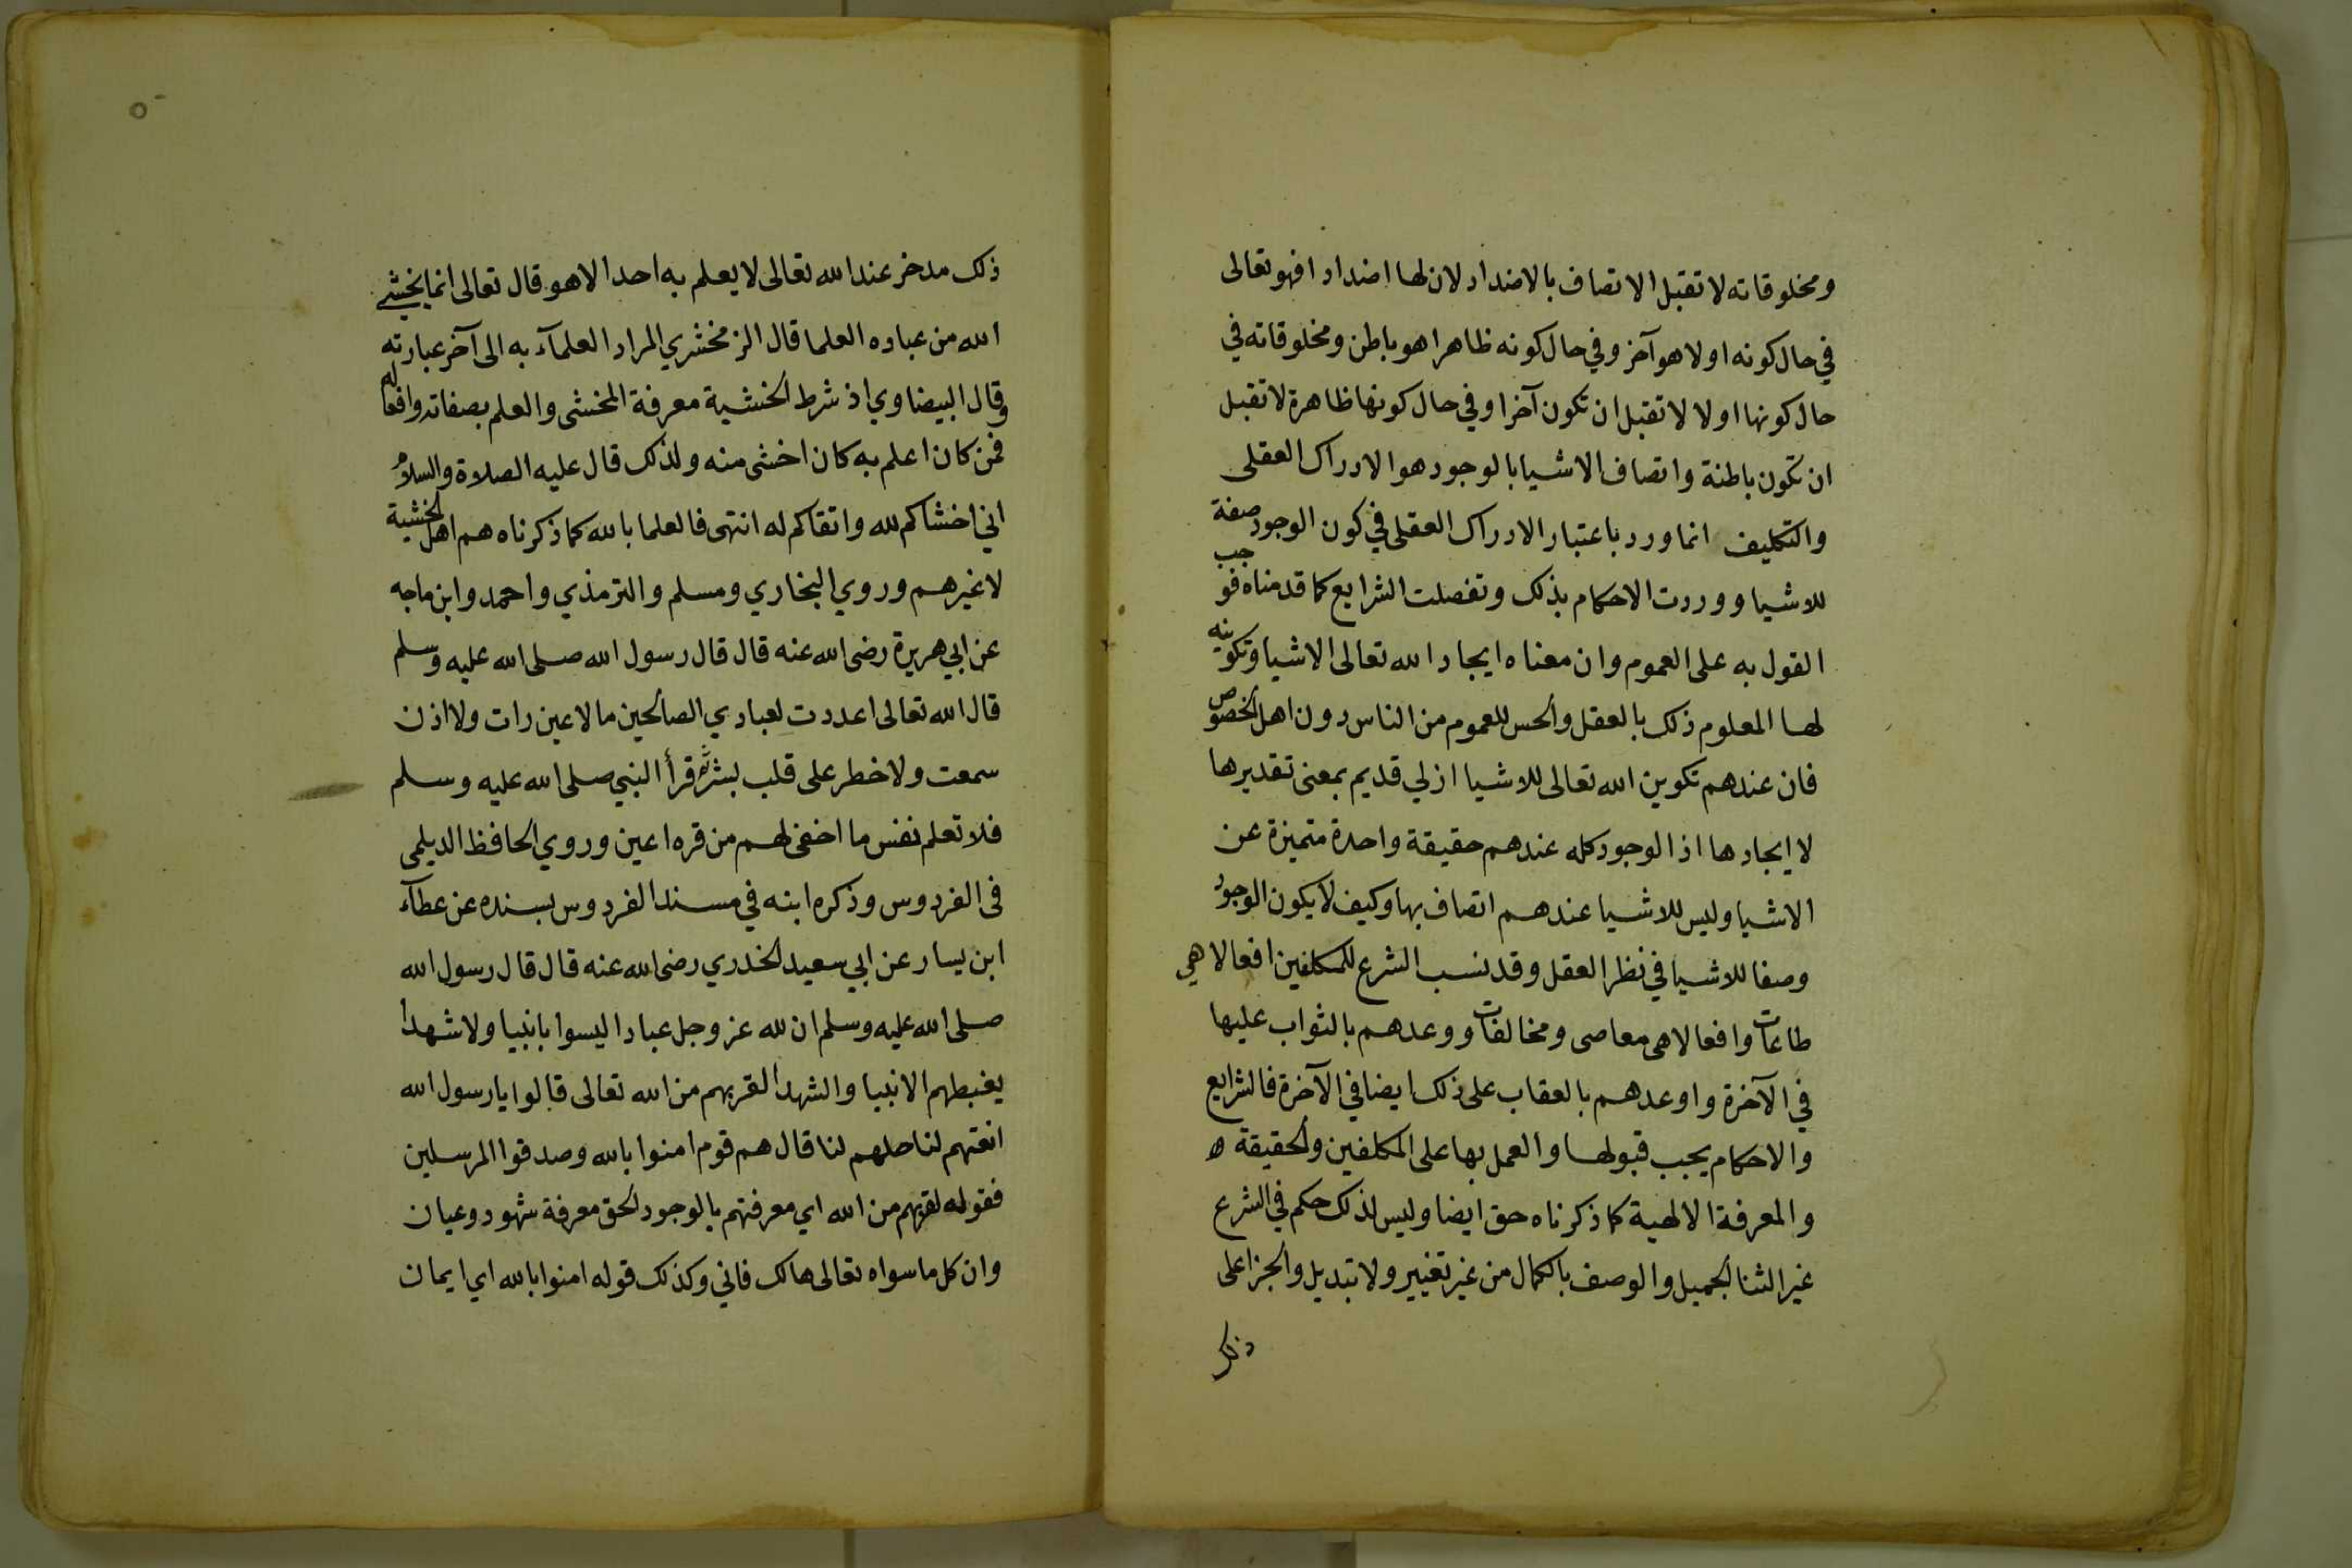 ومخلوقاته لا تقبل الاتصاف بالاضداد لان لها اضدادا فهو تعالى
في حال كونه اولا هو آخر وفي حال كونه ظاهرا هو باطن ومخلوقاته في
حال كونها اولا لا تقبل ان تكون آخرا وفي حال كونها ظاهرة لا تقبل
ان تكون باطنة واتصاف الاشيا بالوجود هو الادراك العقلى
والتكليف انما ورد باعتبار الادراك العقلى في كون الوجود صفة
للاشيا ووردت الاحكام بذلك وتفصلت الشرايع كما قدمناه فوجب
القول به على العموم وان معناه ايجاد الله تعالى الاشيا وتكوينه
لها المعلوم ذلك بالعقل والحس للعموم من الناس دون اهل الخصوص
فان عندهم تكوين الله تعالى للاشيا ازلي قديم بمعنى تقديرها
لا ايجادها اذ الوجود كله عندهم حقيقة واحدة متميزة عن
الاشيا وليس للاشيا عندهم اتصاف بها وكيف لا يكون الوجود
وصفا للاشيا في نظر العقل وقد نسب الشرع للمكلفين افعالا هي
طاعات وافعالا هى معاصى ومخالفات ووعدهم بالثواب عليها
في الآخرة واوعدهم بالعقاب على ذلك ايضا في الآخرة فالشرايع
والاحكام يجب قبولها والعمل بها على المكلفين والحقيقة ه
والمعرفة الالهية كما ذكرناه حق ايضا وليس لذلك حكم في الشرع
غير الثنا الجميل والوصف بالكمال من غير تغيير ولا تبديل والجزا على
ذلك
٥
ذلك مدخر عند الله تعالى لا يعلم به احد الا هو قال تعالى انما يخشى
الله من عباده العلما قال الزمخشري المراد العلمآء به الى آخر عبارته
وقال البيضاوي اذ شرط الخشية معرفة المخشى والعلم بصفاته وافعاله
فمن كان اعلم به كان اخشى منه ولذلك قال عليه الصلاة والسلام
اني اخشاكم لله واتقاكم له انتهى فالعلما بالله كما ذكرناه هم اهل الخشية
لا غيرهم وروي البخاري ومسلم والترمذي واحمد وابن ماجه
عن ابي هريرة رضى الله عنه قال قال رسول الله صلى الله عليه وسلم
قال الله تعالى اعددت لعبادي الصالحين ما لا عين رات ولا اذن
سمعت ولا خطر على قلب بشر ثم قرأ النبي صلى الله عليه وسلم
فلا تعلم نفس ما اخفى لهم من قره اعين وروي الحافظ الديلمى
فى الفردوس وذكره ابنه في مسند الفردوس بسنده عن عطآء
ابن يسار عن ابي سعيد الخدري رضى الله عنه قال قال رسول الله
صلى الله عليه وسلم ان لله عز وجل عبادا ليسوا بانبيا ولا شهدا
يغبطهم الانبيا والشهدا لقربهم من الله تعالى قالوا يا رسول الله
انعتهم لنا حلهم لنا قال هم قوم امنوا بالله وصدقوا المرسلين
فقوله لقربهم من الله اي معرفتهم بالوجود الحق معرفة شهود وعيان
وان كل ما سواه تعالى هالك فاني وكذلك قوله امنوا بالله اي ايمان